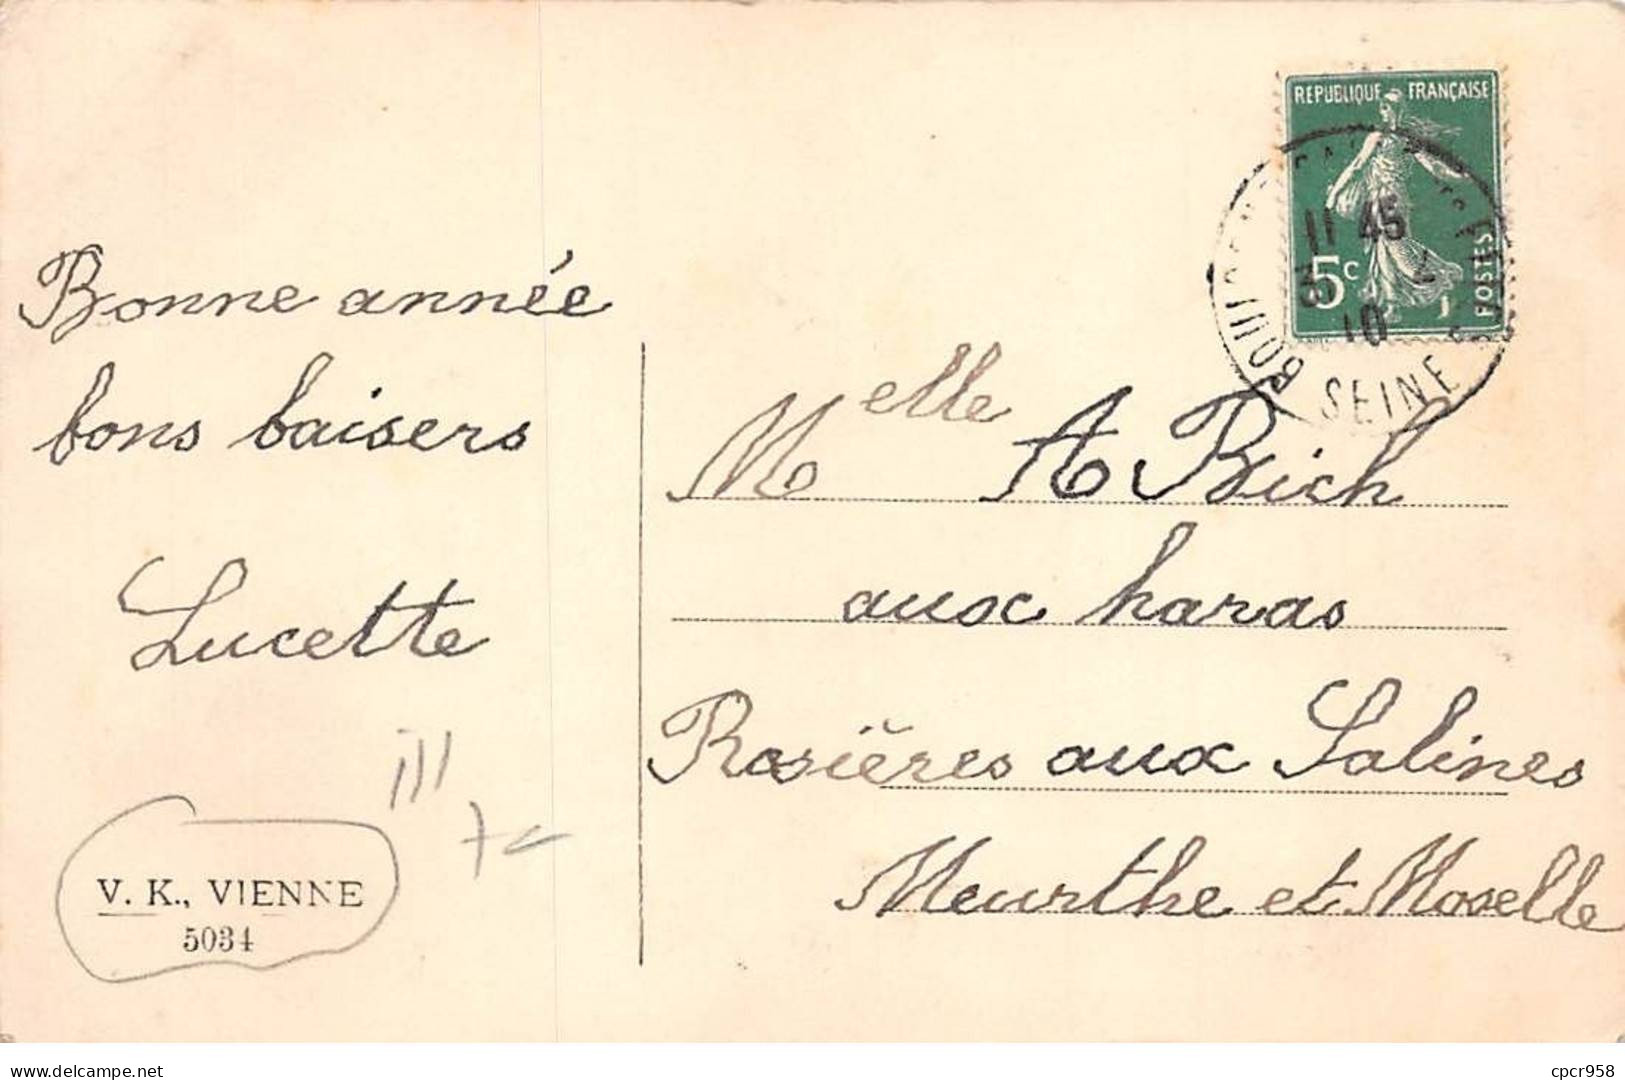 Bonne année
bons baisers
Lucette
V. K., VIENNE
5034
REPUBLIQUE FRANÇAISE
5c
POSTES
11 45
10
SEINE
Melle A Bich
aux haras
Rosières aux Salines
Meurthe et Moselle
delcampe.net
cpcr958